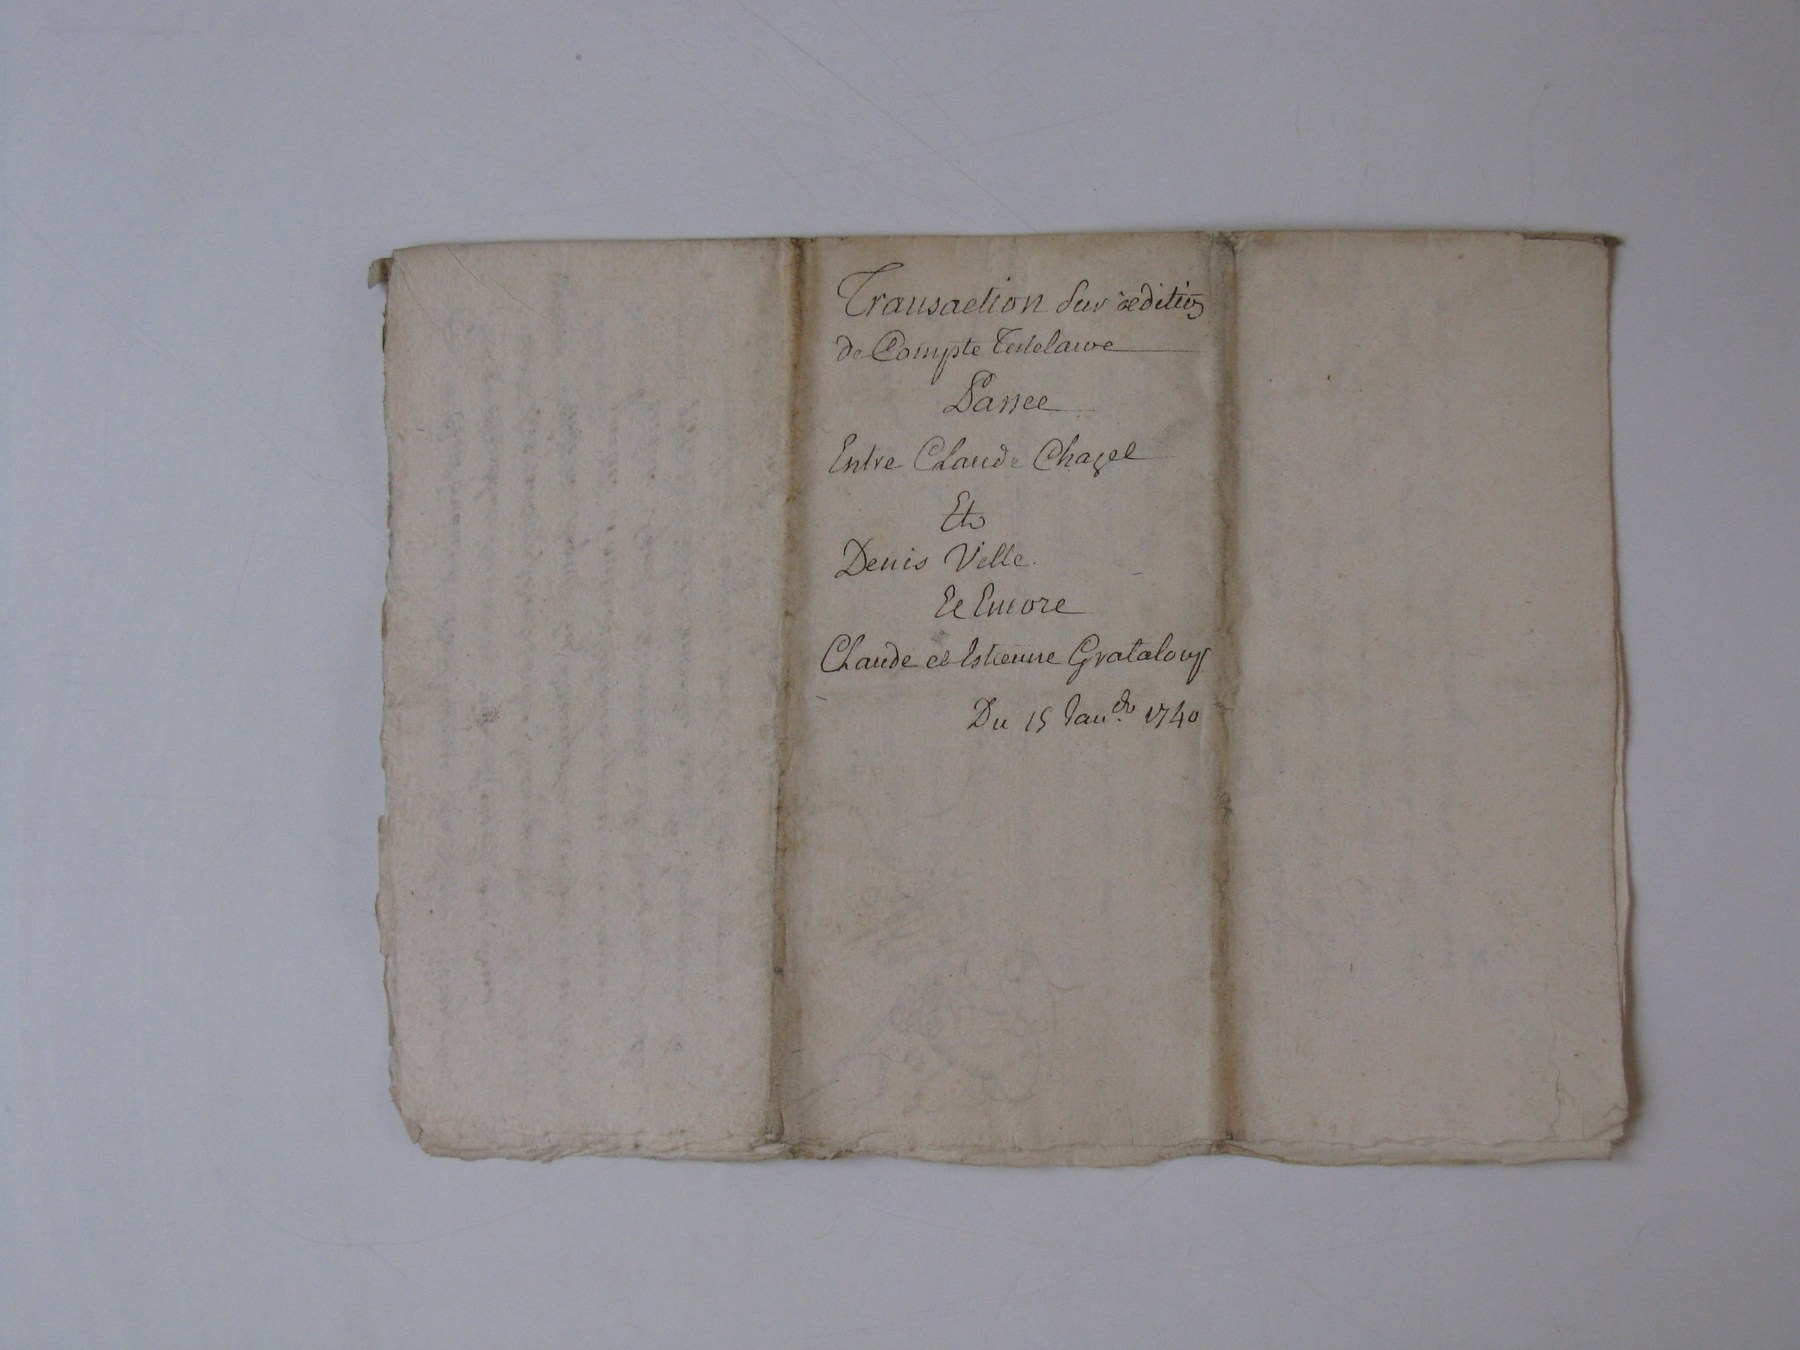 Transaction Sur redition
de Compte Tutelaire
Passee
Entre Claude Chazel
Et
Denis Ville
Et Encore
Claude et Estienne Grataloup
Du 15 Janer. 1740